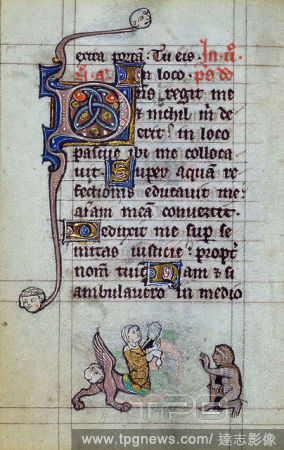 extra portā. Tu eis In iii.
In loco ps dd
Dn̄s regit me
et nichil m̄ de
erit: in loco
pascue ibi me colloca
vit. Super aquā re
fectionis educavit me:
aīam meā convertet.
Deduxit me sup se
mitas iusticie: propt̄
nom̄ tuū. Nam & si
ambulavero in medio
TPG
www.tpgnews.com/達志影像